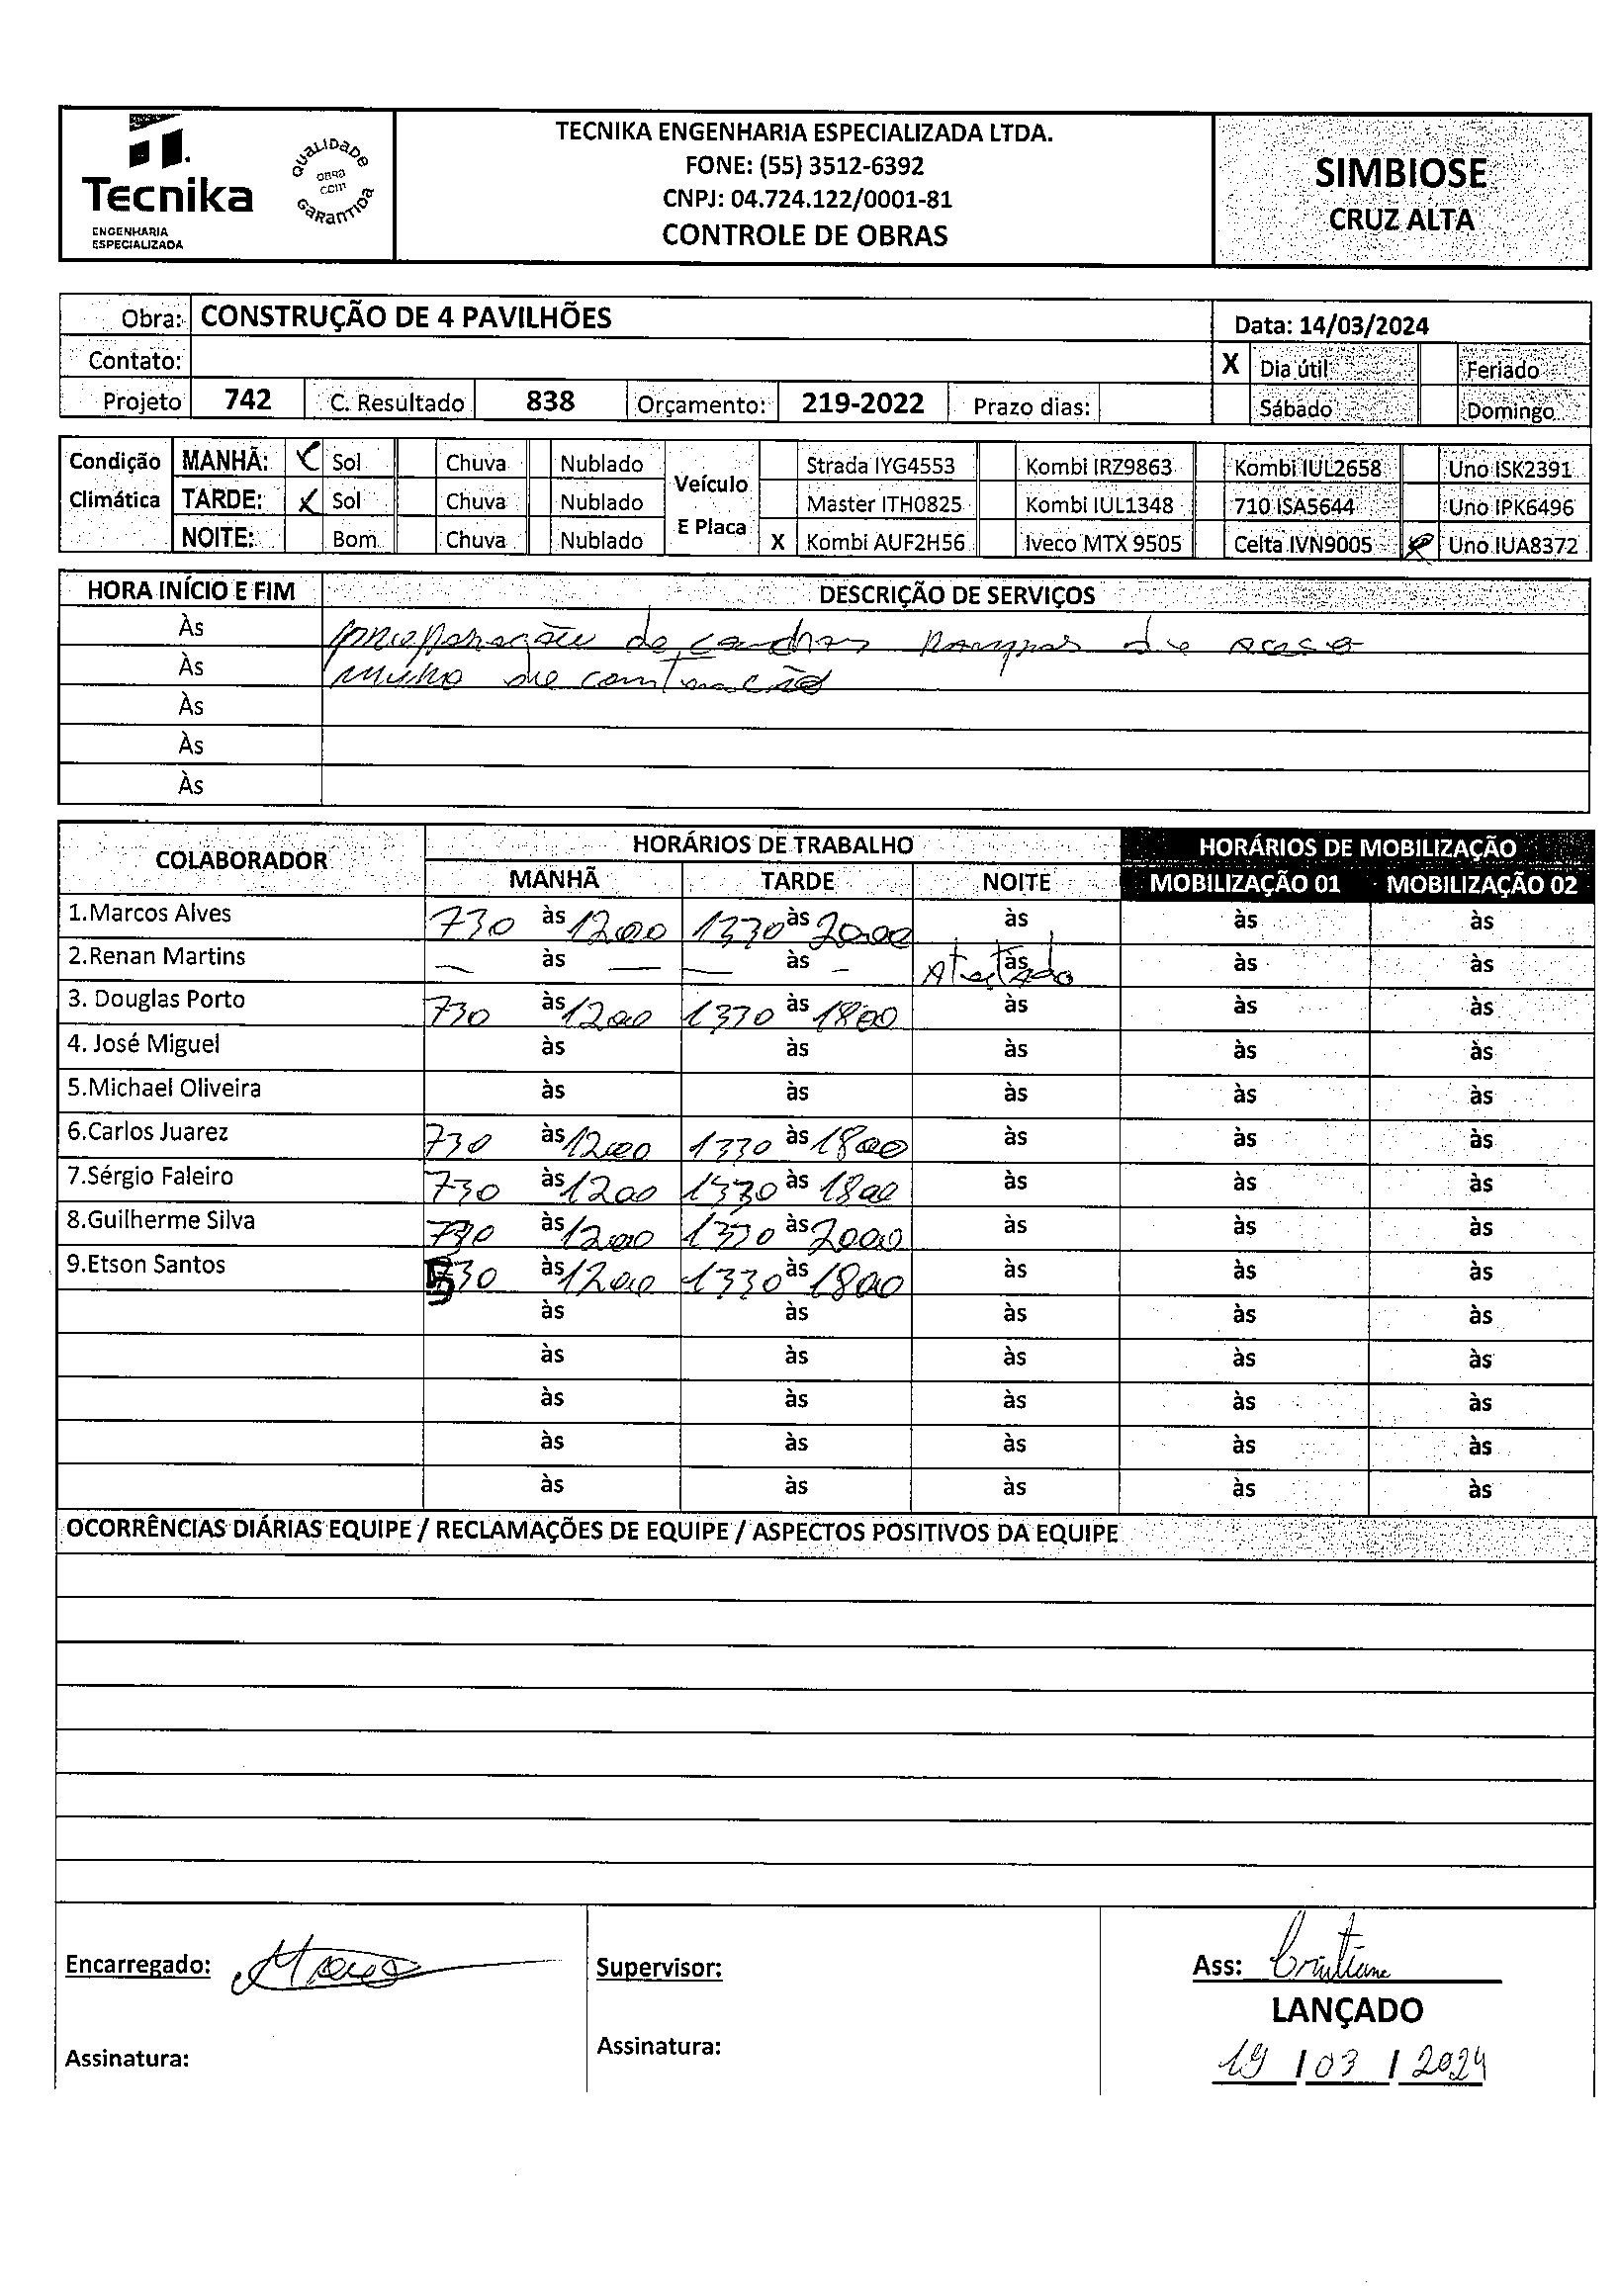 Tecnika
ENGENHARIA
ESPECIALIZADA
QUALIDADE
OBRA
COM
GARANTIDA
TECNIKA ENGENHARIA ESPECIALIZADA LTDA.
FONE: (55) 3512-6392
CNPJ: 04.724.122/0001-81
CONTROLE DE OBRAS
SIMBIOSE
CRUZ ALTA
Obra: CONSTRUÇÃO DE 4 PAVILHÕES Data: 14/03/2024
Contato: X Dia útil Feriado
Projeto 742 C. Resultado 838 Orçamento: 219-2022 Prazo dias: Sábado Domingo
Condição Climática Veículo E Placa
MANHÃ: X Sol Chuva Nublado Strada IYG4553 Kombi IRZ9863 Kombi IUL2658 Uno ISK2391
TARDE: X Sol Chuva Nublado Master ITH0825 Kombi IUL1348 710 ISA5644 Uno IPK6496
NOITE: Bom Chuva Nublado X Kombi AUF2H56 Iveco MTX 9505 Celta IVN9005 Uno IUA8372
HORA INÍCIO E FIM DESCRIÇÃO DE SERVIÇOS
Às de rampas de
Às muro de
Às
Às
Às
COLABORADOR HORÁRIOS DE TRABALHO HORÁRIOS DE MOBILIZAÇÃO
MANHÃ TARDE NOITE MOBILIZAÇÃO 01 MOBILIZAÇÃO 02
1.Marcos Alves 730 às 1200 1330 às 2000 às às às
2.Renan Martins — às — — às — Atestado às às às
3. Douglas Porto 730 às 1200 1330 às 1800 às às às
4. José Miguel às às às às às
5.Michael Oliveira às às às às às
6.Carlos Juarez 730 às 1200 1330 às 1800 às às às
7.Sérgio Faleiro 730 às 1200 1330 às 1800 às às às
8.Guilherme Silva 730 às 1200 1330 às 2000 às às às
9.Etson Santos 730 às 1200 1330 às 1800 às às às
às às às às às
às às às às às
às às às às às
às às às às às
às às às às às
OCORRÊNCIAS DIÁRIAS EQUIPE / RECLAMAÇÕES DE EQUIPE / ASPECTOS POSITIVOS DA EQUIPE
Encarregado: Supervisor: Ass: Cristiane
LANÇADO
Assinatura: Assinatura: 19 / 03 / 2024